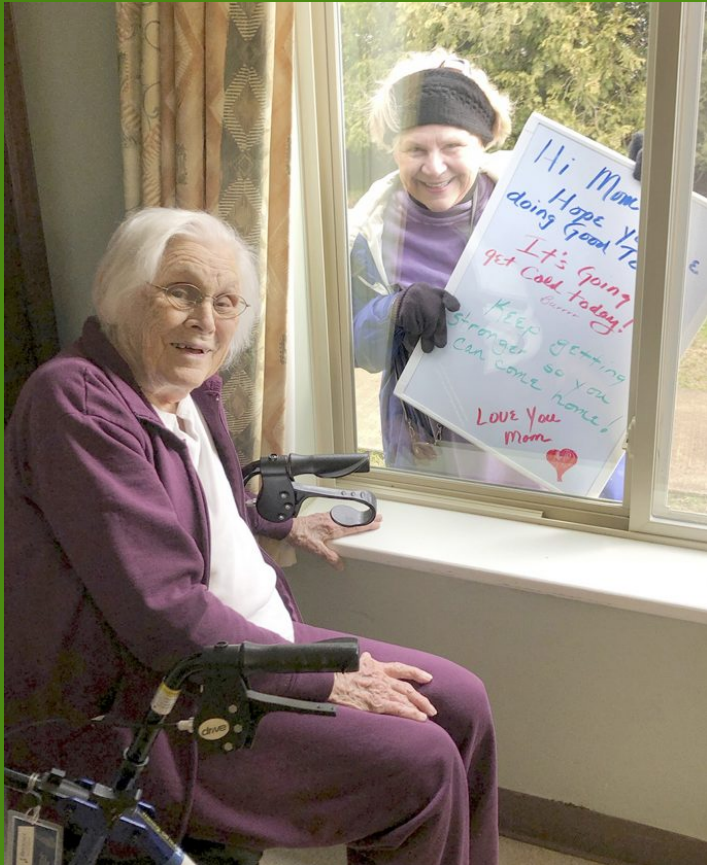 Hi Mom
Hope
doing Good
It's Going
get Cold today!
Burrrr
Keep getting
stronger so you
can come home!
LOVE YOU
Mom
drive